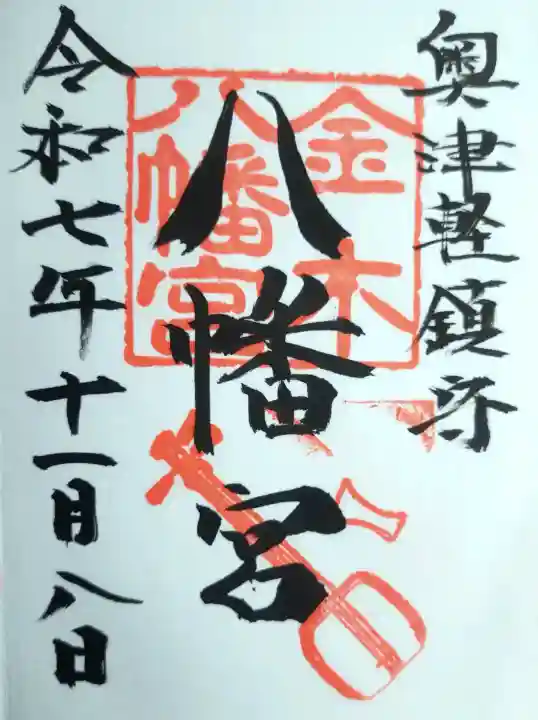 奥津軽鎮守
八幡宮
金木
八幡宮
令和七年十一月八日